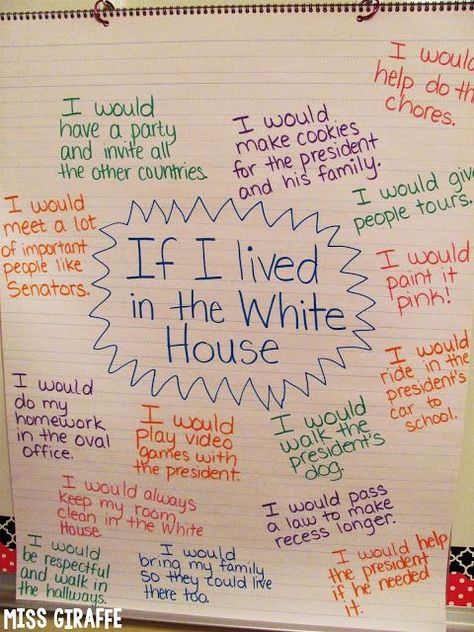 I would
help do the
chores.
I would
have a party
and invite all
the other countries.
I would
make cookies
for the president
and his family.
I would give
people tours.
I would
meet a lot
of important
people like
Senators.
If I lived
in the White
House
I would
paint it
pink!
I would
ride in the
president's
car to
school.
I would
do my
homework
in the oval
office.
I would
play video
games with
the president.
I would
walk the
president's
dog.
I would always
keep my room
clean in the White
House.
I would pass
a law to make
recess longer.
I would
be respectful
and walk in
the hallways.
I would
bring my family
so they could live
there too.
I would help
the president
if he needed
it.
MISS GIRAFFE